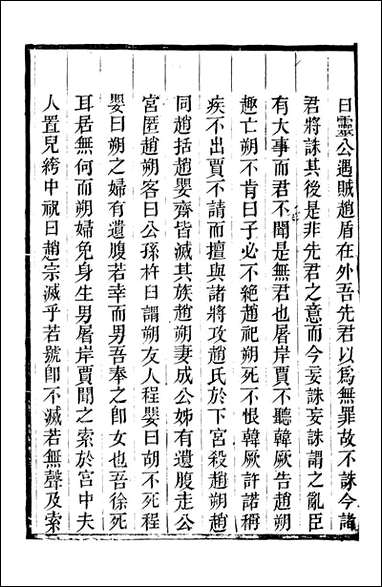 曰靈公遇賊趙盾在外吾先君以爲無罪故不誅今諸
君將誅其後是非先君之意而今妄誅妄誅謂之亂臣
有大事而君不聞是無君也屠岸賈不聽韓厥告趙朔
趣亡朔不肯曰子必不絕趙祀朔死不恨韓厥許諾稱
疾不出賈不請而擅與諸將攻趙氏於下宮殺趙朔趙
同趙括趙嬰齊皆滅其族趙朔妻成公姊有遺腹走公
宮匿趙朔客曰公孫杵臼謂朔友人程嬰曰胡不死程
嬰曰朔之婦有遺腹若幸而男吾奉之卽女也吾徐死
耳居無何而朔婦免身生男屠岸賈聞之索於宮中夫
人置兒絝中祝曰趙宗滅乎若號卽不滅若無聲及索